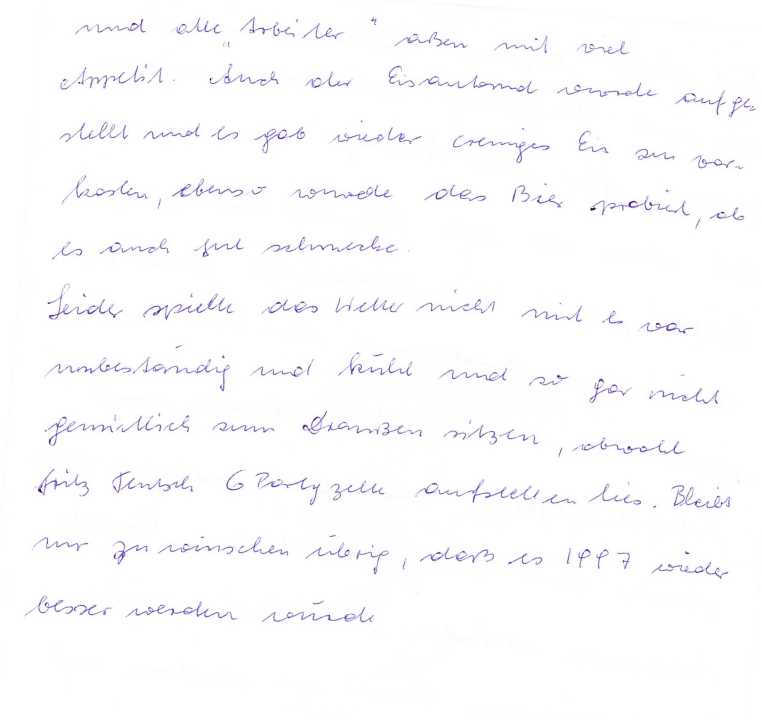 und alle „Arbeiter“ aßen mit viel
Appetit. Auch der Eisautomat wurde aufge-
stellt und es gab wieder cremiges Eis zu ver-
kosten, ebenso wurde das Bier probiert, ob
es auch gut schmecke.
Leider spielte das Wetter nicht mit es war
unbeständig und kühl und so gar nicht
gemütlich zum Draußen sitzen, obwohl
Fritz Teutsch 6 Partyzelte aufstellen lies. Bleibt
nur zu wünschen übrig, daß es 1997 wieder
besser werden würde